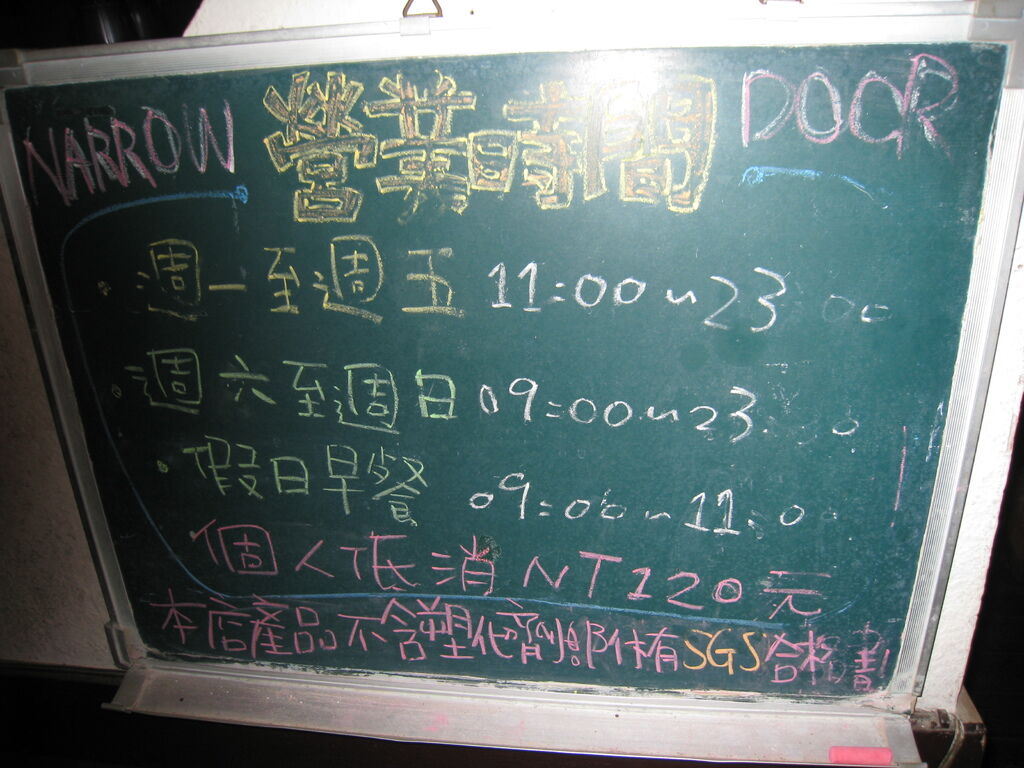 NARROW 營業時間 DOOR
· 週一至週五 11:00~23:00
· 週六至週日 09:00~23:00
· 假日早餐 09:00~11:00
· 個人低消 NT120元
本店產品不含塑化劑都有SGS合格書!